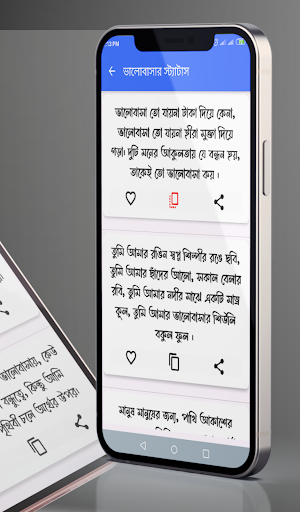 ভালোবাসার স্ট্যাটাস
ভালোবাসা তো যায়না টাকা দিয়ে কেনা,
ভালোবাসা তো যায়না হীরা মুক্তা দিয়ে
গড়া। দুটি মনের আকুলতায় যে বন্ধন হয়,
তাকেই তো ভালোবাসা কয়।
তুমি আমার রঙিন স্বপ্ন শিল্পীর রঙে ছবি,
তুমি আমার চাঁদের আলো, সকাল বেলার
রবি, তুমি আমার নদীর মাঝে একটি মাত্র
কূল, তুমি আমার ভালোবাসার শিউলি
বকুল ফুল।
মানুষ মানুষের জন্য, পাখি আকাশের
ভালোবাসায়, কেউ
বন্ধুত্বে, কিন্তু আমি
পৃথিবী চলে অর্থের উপর।